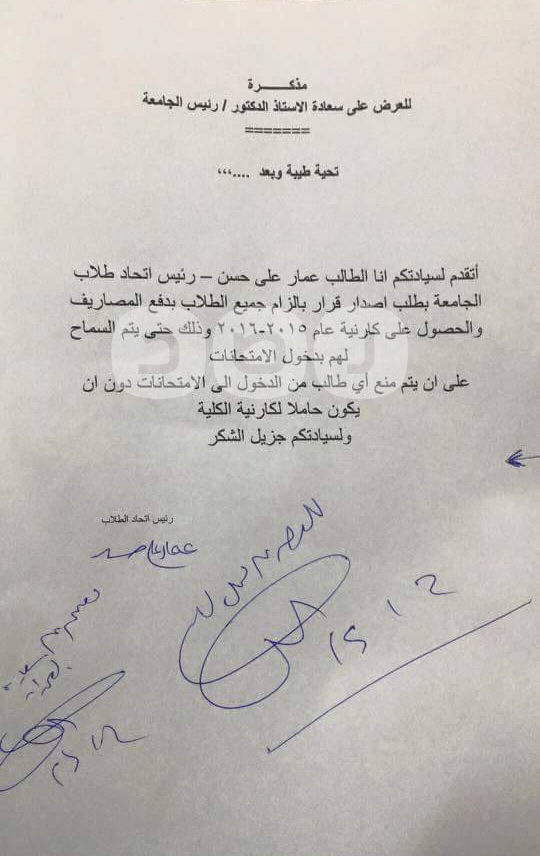 مذكـــــرة
للعرض على سعادة الاستاذ الدكتور / رئيس الجامعة
=======
تحية طيبة وبعد ....،،،
أتقدم لسيادتكم انا الطالب عمار على حسن – رئيس اتحاد طلاب
الجامعة بطلب اصدار قرار بالزام جميع الطلاب بدفع المصاريف
والحصول على كارنية عام ٢٠١٥-٢٠١٦ وذلك حتى يتم السماح
لهم بدخول الامتحانات
على ان يتم منع أي طالب من الدخول الى الامتحانات دون ان
يكون حاملا لكارنية الكلية
ولسيادتكم جزيل الشكر
رئيس اتحاد الطلاب
عمار على حسن